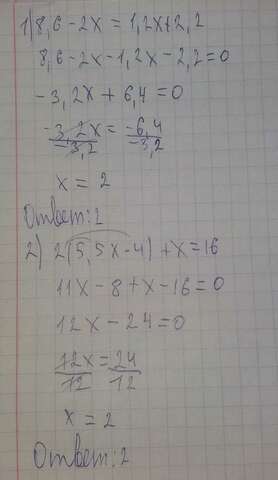 1) 8,6 - 2x = 1,2x + 2,2
8,6 - 2x - 1,2x - 2,2 = 0
-3,2x + 6,4 = 0
-3,2x/-3,2 = -6,4/-3,2
x = 2
Ответ: 2
2) 2(5,5x - 4) + x = 16
11x - 8 + x - 16 = 0
12x - 24 = 0
12x/12 = 24/12
x = 2
Ответ: 2